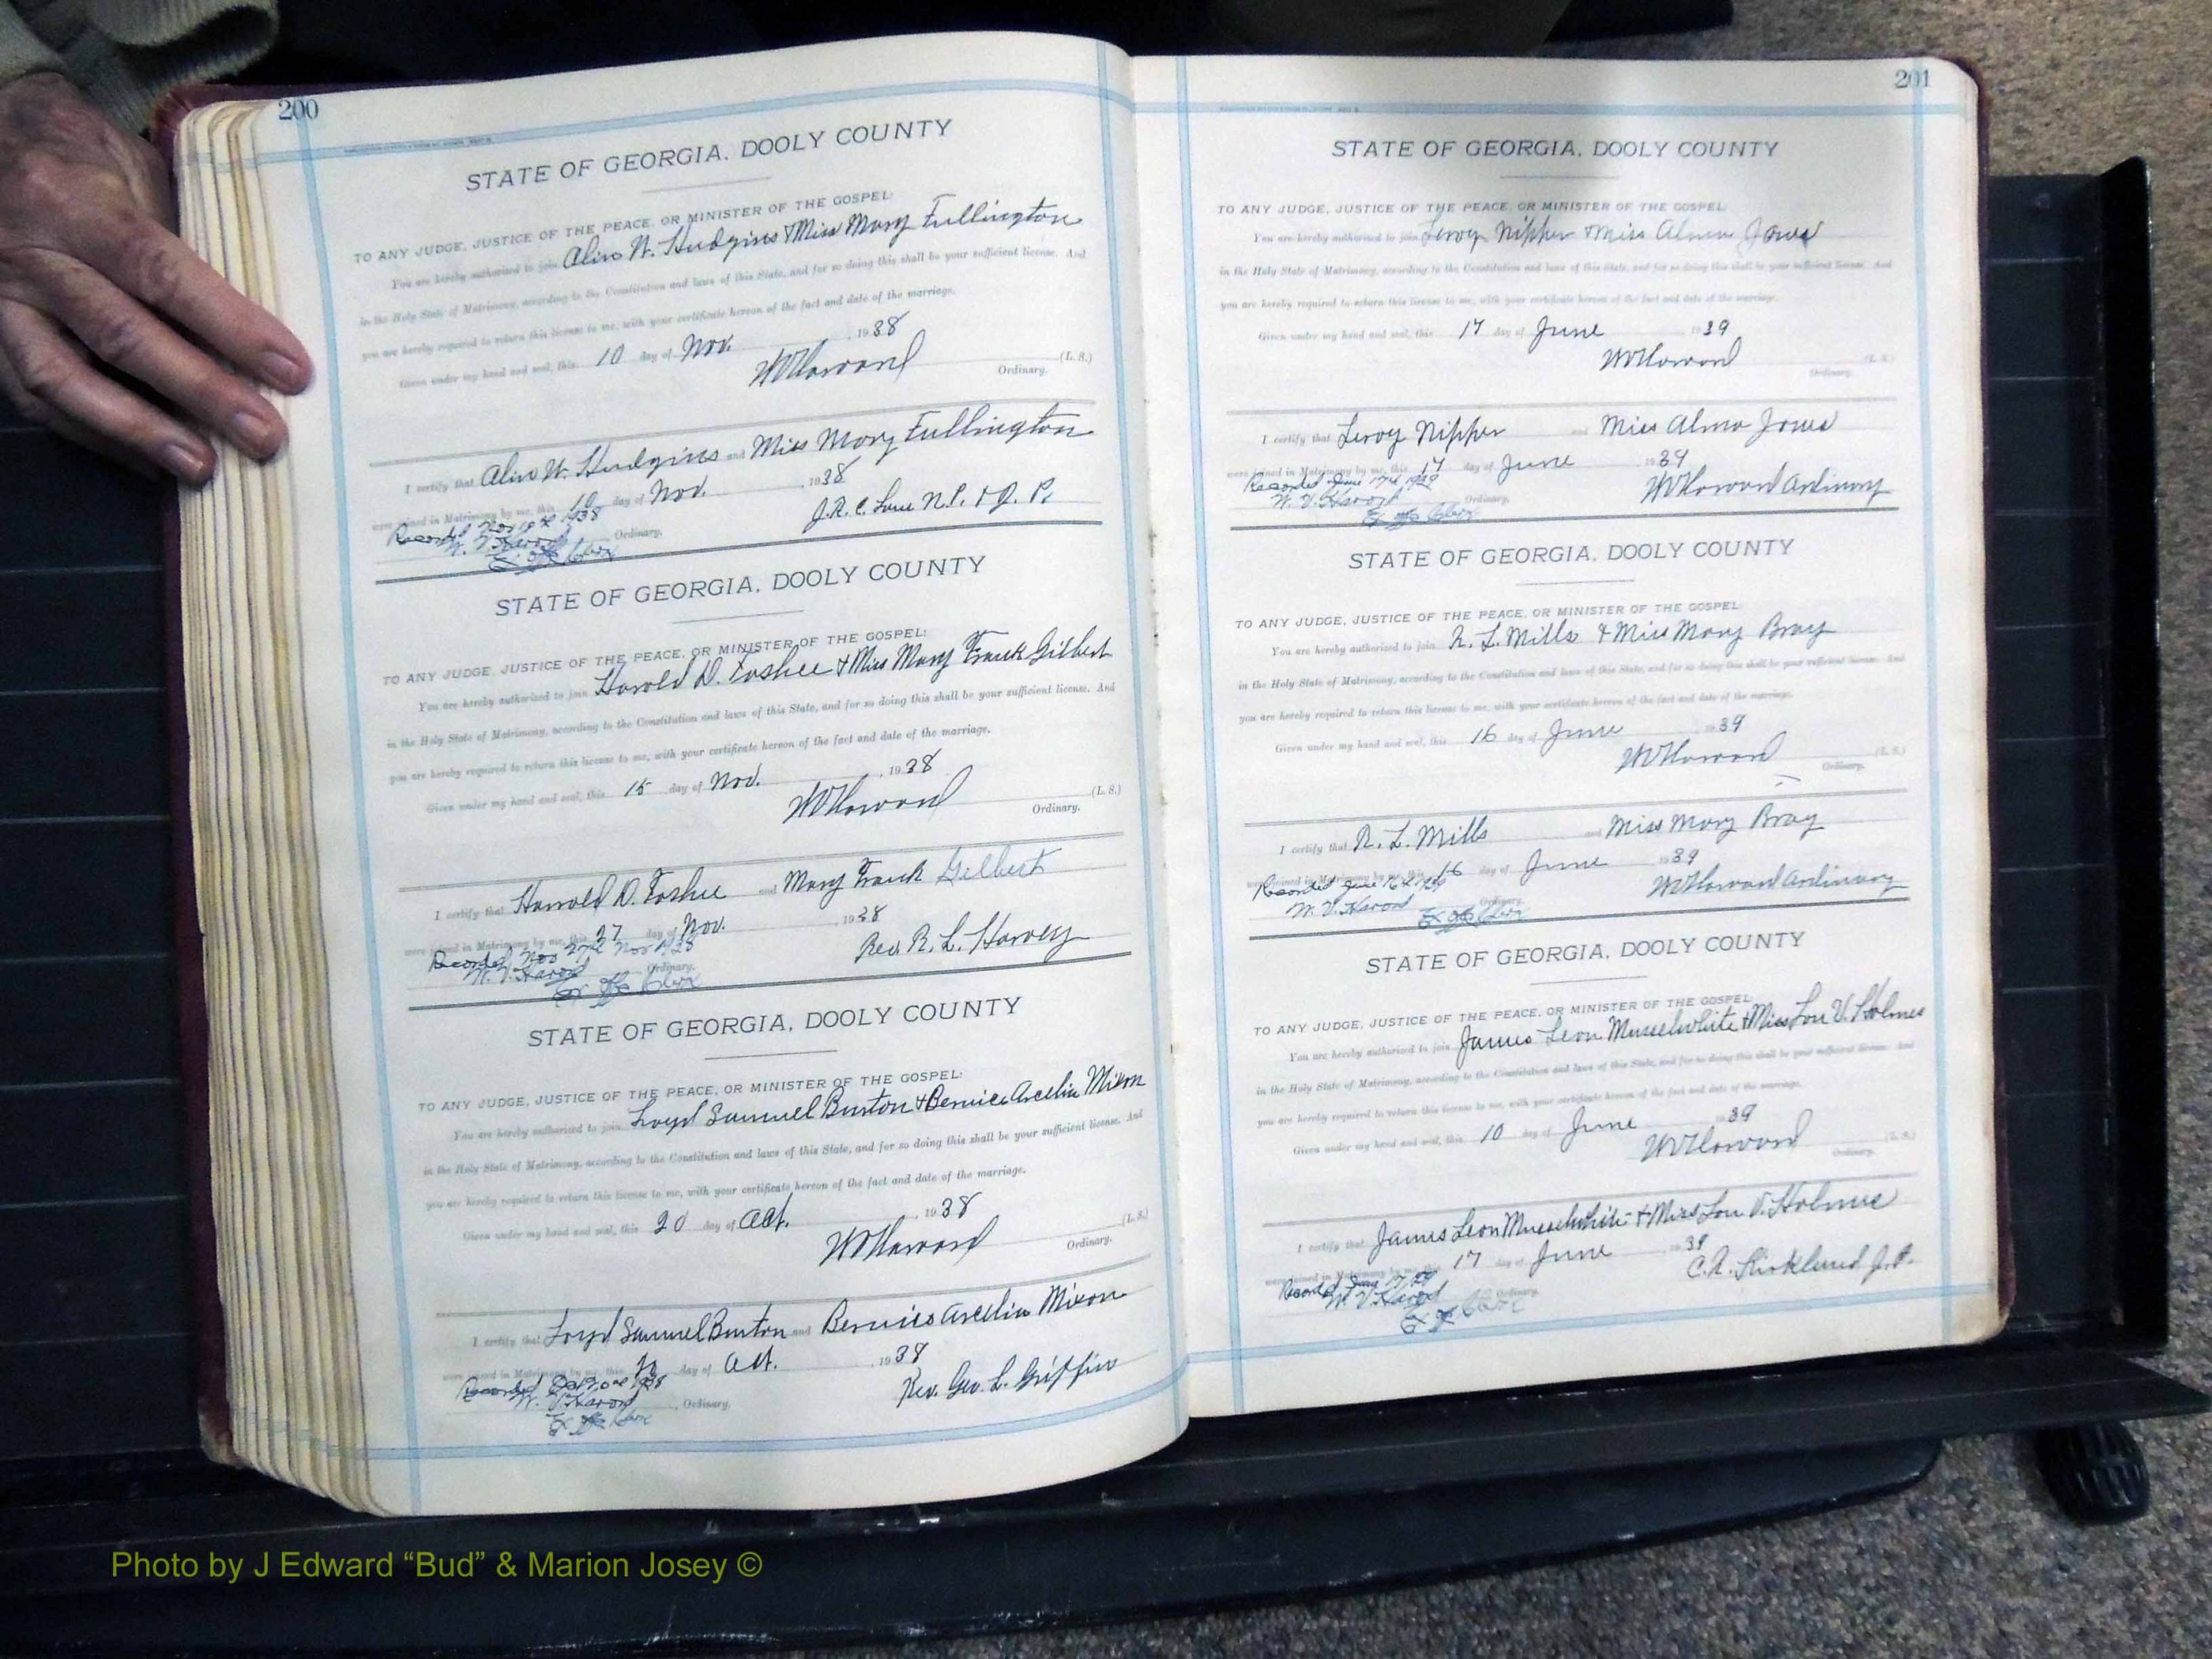 200
STATE OF GEORGIA, DOOLY COUNTY
TO ANY JUDGE, JUSTICE OF THE PEACE, OR MINISTER OF THE GOSPEL:
You are hereby authorized to join Alin W. Hudgins & Miss Mary Fullington
in the Holy State of Matrimony, according to the Constitution and laws of this State, and for so doing this shall be your sufficient license. And
you are hereby required to return this license to me, with your certificate hereon of the fact and date of the marriage.
Given under my hand and seal, this 10 day of Nov. 1938
WVHarvard (L. S.)
Ordinary.
I certify that Alin W. Hudgins and Miss Mary Fullington
were joined in Matrimony by me, this 10 day of Nov. 1938
Recorded Nov 10th 1938 Ordinary. J.R.C. N.P. & J. P.
W. V. Harvard
Ex off
STATE OF GEORGIA, DOOLY COUNTY
TO ANY JUDGE, JUSTICE OF THE PEACE, OR MINISTER OF THE GOSPEL:
You are hereby authorized to join Harold D. Foshee & Miss Mary Frank Gilbert
in the Holy State of Matrimony, according to the Constitution and laws of this State, and for so doing this shall be your sufficient license. And
you are hereby required to return this license to me, with your certificate hereon of the fact and date of the marriage.
Given under my hand and seal, this 15 day of Nov. 1938
WVHarvard (L. S.)
Ordinary.
I certify that Harrold D. Foshee and Mary Frank Gilbert
were joined in Matrimony by me, this 27 day of Nov. 1938
Recorded Nov 27th Nov 1938 Ordinary. Rev. R. L. Harvey
W. V. Harvard
Ex off
STATE OF GEORGIA, DOOLY COUNTY
TO ANY JUDGE, JUSTICE OF THE PEACE, OR MINISTER OF THE GOSPEL:
You are hereby authorized to join Loyd Samuel Burton & Bernice Arcelia Mixon
in the Holy State of Matrimony, according to the Constitution and laws of this State, and for so doing this shall be your sufficient license. And
you are hereby required to return this license to me, with your certificate hereon of the fact and date of the marriage.
Given under my hand and seal, this 20 day of Oct. 1938
WVHarvard (L. S.)
Ordinary.
I certify that Loyd Samuel Burton and Bernice Arcelia Mixon
were joined in Matrimony by me, this 20 day of Oct. 1938
Recorded 1938 Ordinary. Rev. Geo. L. Griffin
W. V. Harvard
Ex off
201
STATE OF GEORGIA, DOOLY COUNTY
TO ANY JUDGE, JUSTICE OF THE PEACE, OR MINISTER OF THE GOSPEL:
You are hereby authorized to join Leroy Nipper & Miss Alma Jones
in the Holy State of Matrimony, according to the Constitution and laws of this State, and for so doing this shall be your sufficient license. And
you are hereby required to return this license to me, with your certificate hereon of the fact and date of the marriage.
Given under my hand and seal, this 17 day of June 1939
WVHarvard (L. S.)
Ordinary.
I certify that Leroy Nipper and Miss Alma Jones
were joined in Matrimony by me, this 17 day of June 1939
Recorded June 17th 1939 Ordinary. WVHarvard Ordinary
W. V. Harvard
Ex off
STATE OF GEORGIA, DOOLY COUNTY
TO ANY JUDGE, JUSTICE OF THE PEACE, OR MINISTER OF THE GOSPEL:
You are hereby authorized to join R. L. Mills & Miss Mary Bray
in the Holy State of Matrimony, according to the Constitution and laws of this State, and for so doing this shall be your sufficient license. And
you are hereby required to return this license to me, with your certificate hereon of the fact and date of the marriage.
Given under my hand and seal, this 16 day of June 1939
WVHarvard (L. S.)
Ordinary.
I certify that R. L. Mills and Miss Mary Bray
were joined in Matrimony by me, this 16 day of June 1939
Recorded June 16th 1939 Ordinary. WVHarvard Ordinary
W. V. Harvard
Ex off
STATE OF GEORGIA, DOOLY COUNTY
TO ANY JUDGE, JUSTICE OF THE PEACE, OR MINISTER OF THE GOSPEL:
You are hereby authorized to join James Leon Musselwhite & Miss Lou V. Holmes
in the Holy State of Matrimony, according to the Constitution and laws of this State, and for so doing this shall be your sufficient license. And
you are hereby required to return this license to me, with your certificate hereon of the fact and date of the marriage.
Given under my hand and seal, this 10 day of June 1939
WVHarvard (L. S.)
Ordinary.
I certify that James Leon Musselwhite & Miss Lou V. Holmes
were joined in Matrimony by me, this 17 day of June 1939
Recorded 17/39 Ordinary. C.A. Kirkland J.P.
W. V. Harvard
Ex off
Photo by J Edward “Bud” & Marion Josey ©